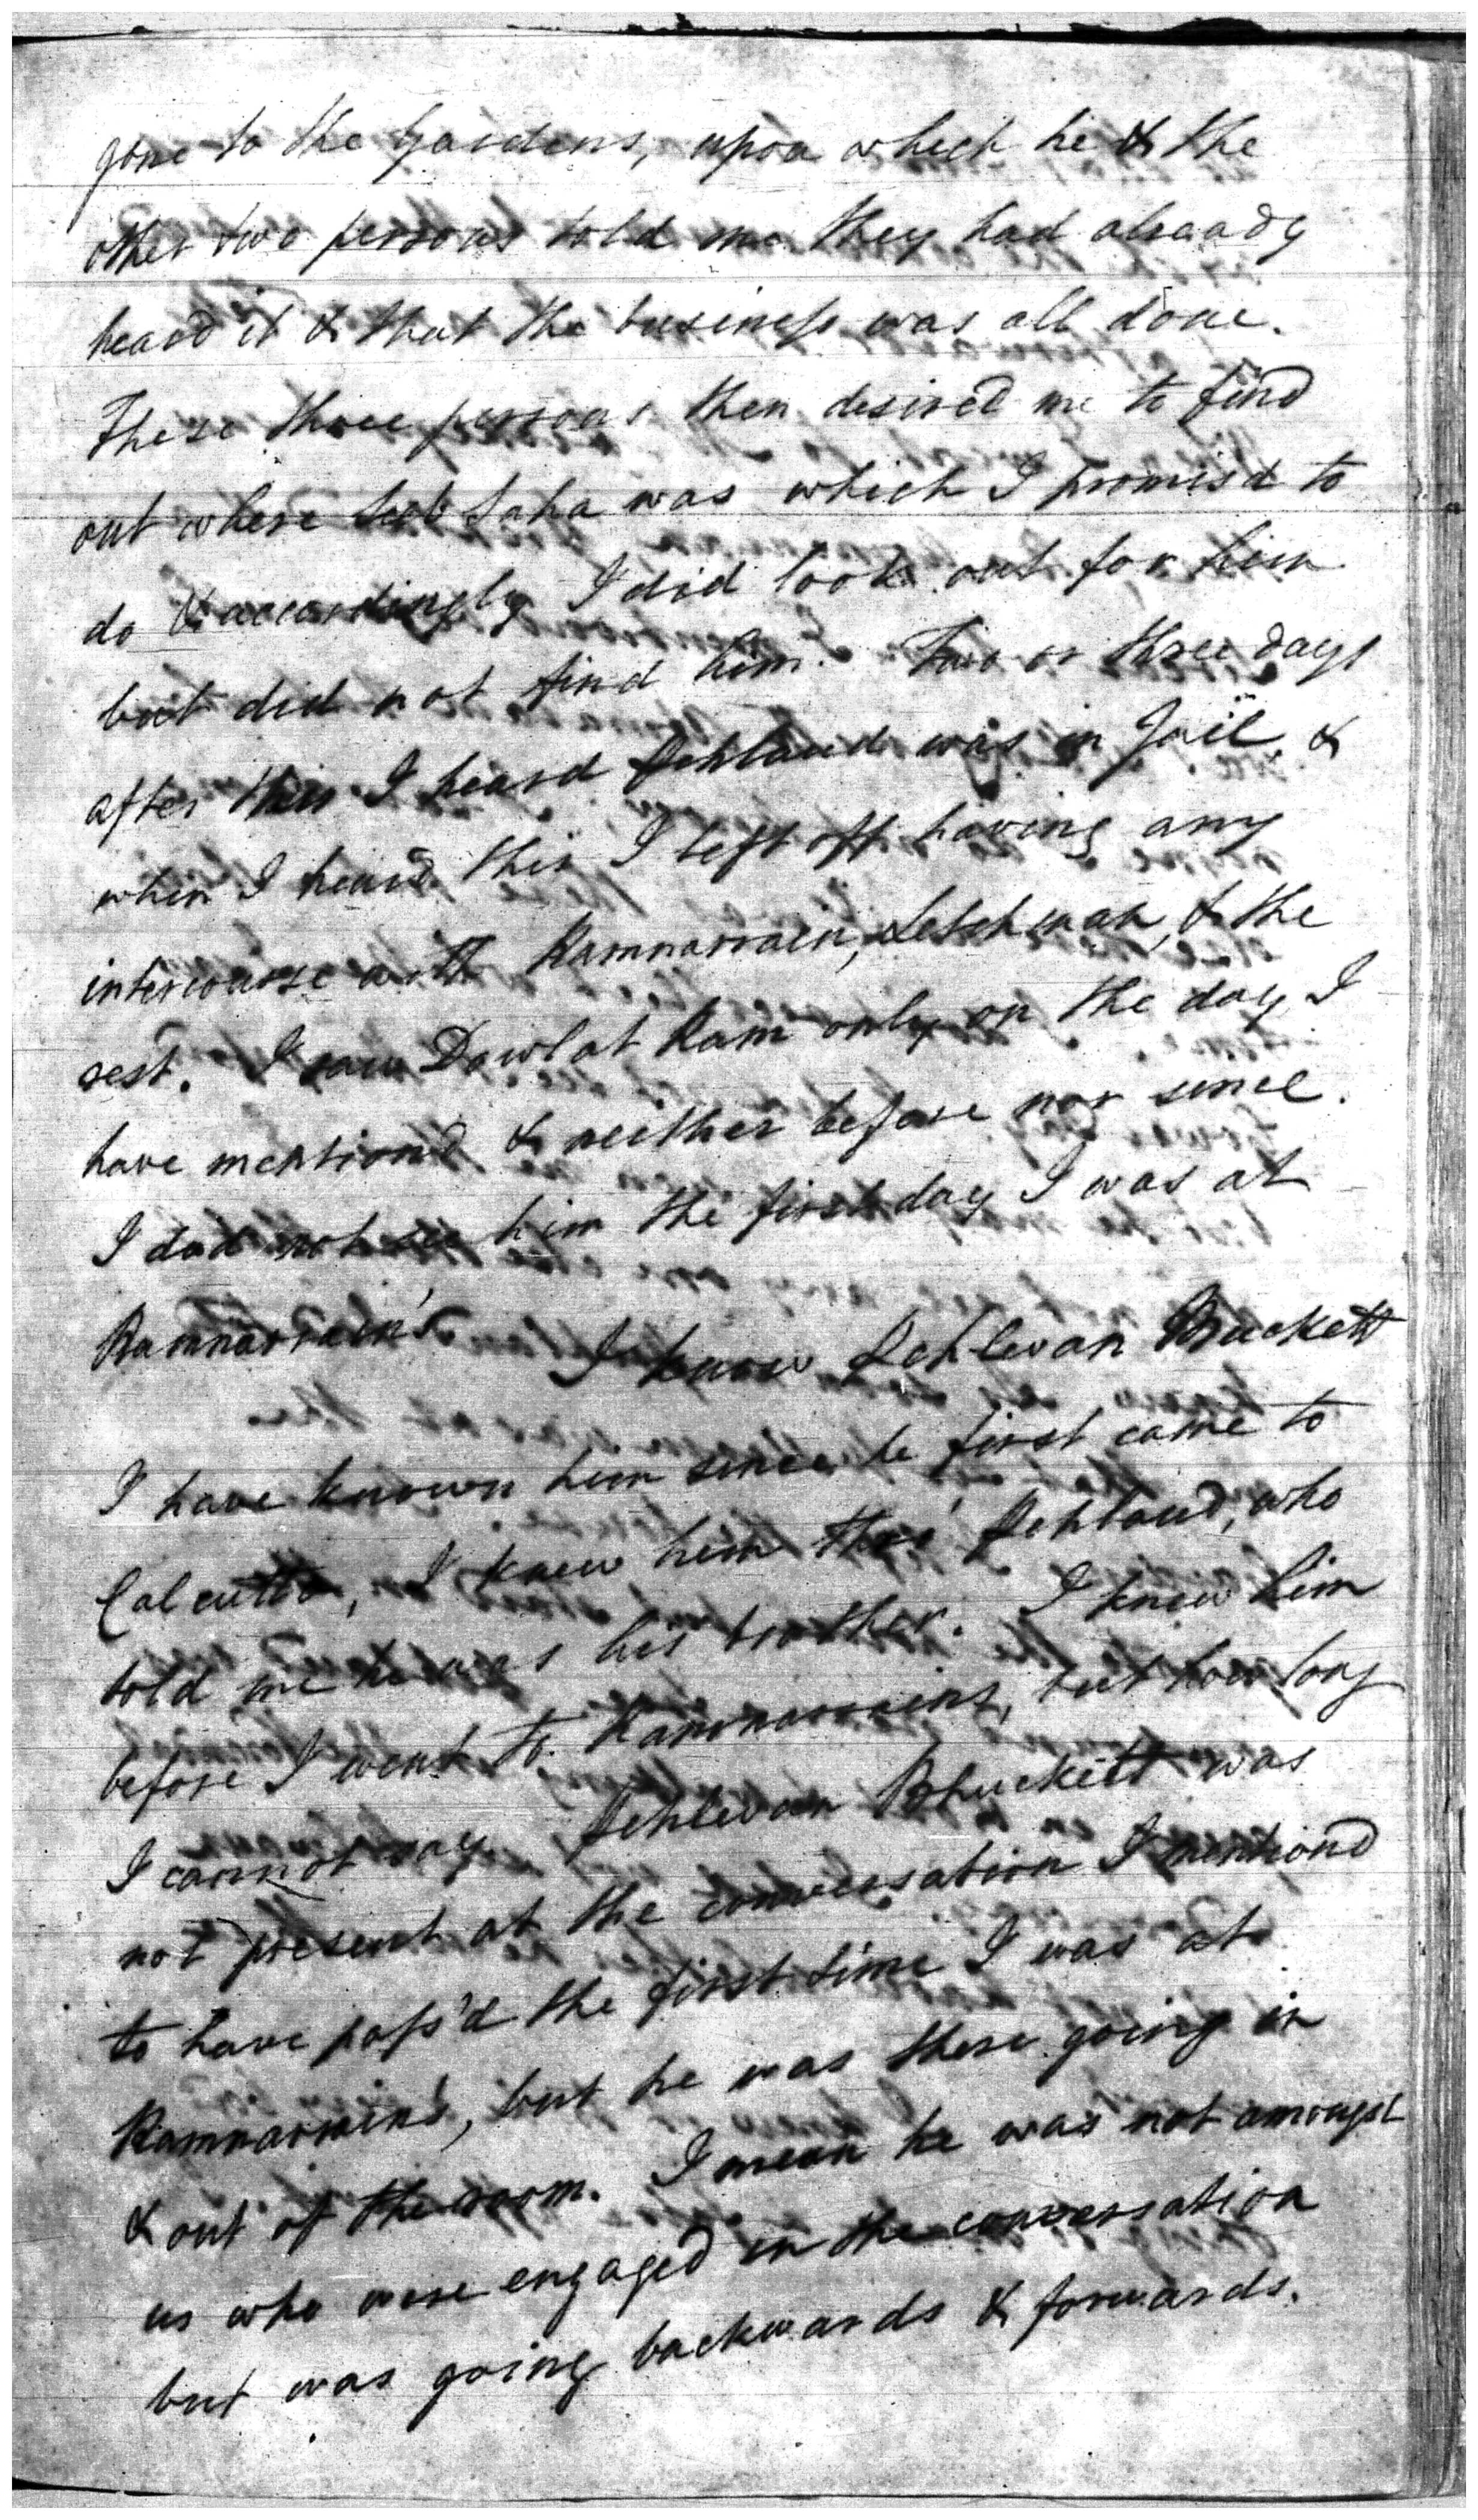 gone to the Gardens, upon which he & the
other two persons told me they had already
heard it & that the business was all done.
These three persons then desired me to find
out where Saha was which I promisd to
do & accordingly I did look out for him
but did not find him. Two or three days
after this I heard was in Jail, &
when I heard this I left off having any
intercourse with Ramnarrain, & the
rest. I saw Dowlat Ram only on the day I
have mentiond & neither before nor since.
I did not see him the first day I was at
Ramnarrain's I know Buckett
I have known him since he first came to
Calcutta, I knew him thro' who
told me he was his brother. I knew him
before I went to Ramnarrains, but how long
I cannot say. Bhuckett was
not present at the conversation I mentiond
to have pass'd the first time I was at
Ramnarrain's, but he was there going in
& out of the room. I mean he was not amongst
us who were engaged in the conversation
but was going backwards & forwards.